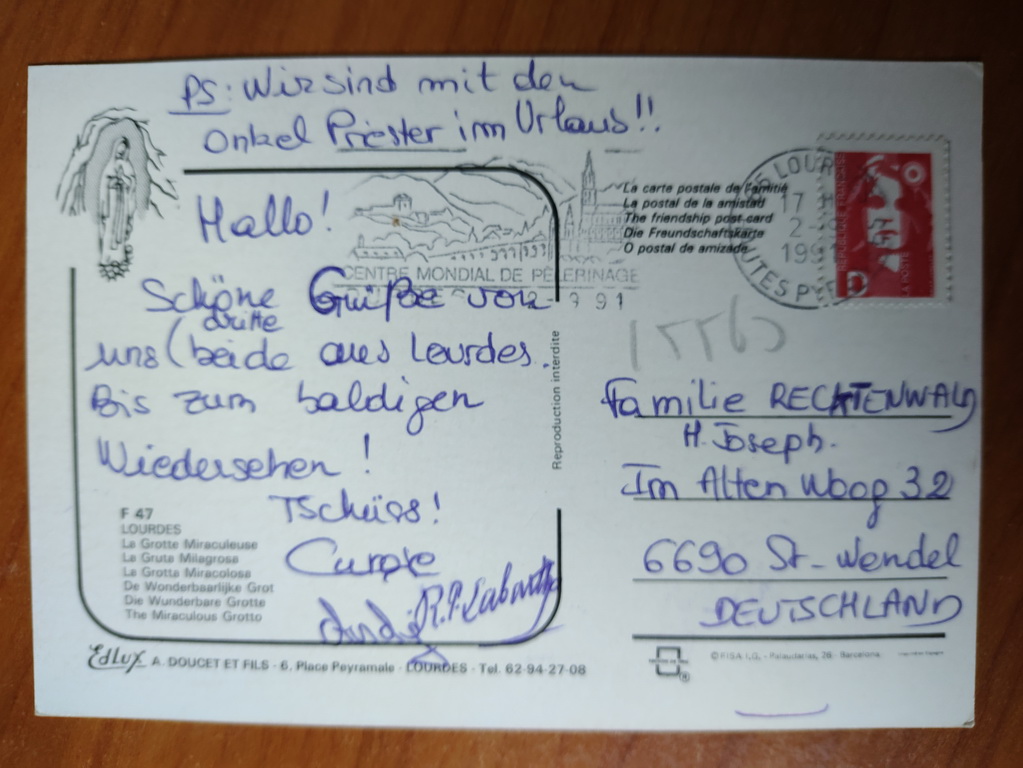 PS: Wir sind mit den
Onkel Priester im Urlaus!!
Hallo!
Schöne Grüße von
dritte
uns (beide aus Lourdes.
Bis zum baldigen
Wiedersehen!
Tschüss!
R.P. Labarthe
F 47
LOURDES
La Grotte Miraculeuse
La Gruta Milagrosa
La Grotta Miracolosa
De Wonderbaarlijke Grot
Die Wunderbare Grotte
The Miraculous Grotto
Edlux A. DOUCET ET FILS - 6, Place Peyramale - LOURDES - Tel. 62-94-27-08
Reproduction interdite
CENTRE MONDIAL DE PÈLERINAGE
La carte postale de l'amitié
La postal de la amistad
The friendship post card
Die Freundschaftskarte
O postal de amizade
LOUR
17 H
2-
1991
UTES PY
REPUBLIQUE FRANÇAISE
LA POSTE
Familie RECKTENWALD
H. Joseph.
Im Alten Woog 32
6690 St-Wendel
DEUTSCHLAND
© F.I.S.A. I.G. - Palaudarias, 26 - Barcelona